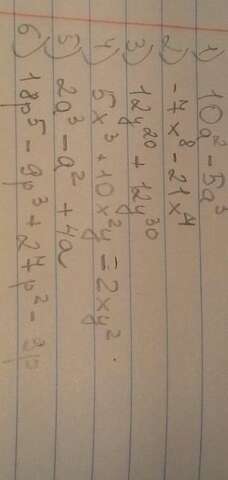 1) 10a² - 5a³
2) -7x⁸ - 21x⁴
3) 12y²⁰ + 12y³⁰
4) 5x³ + 10x²y = 2xy².
5) 2a³ - a² + 4a
6) 18p⁵ - 9p³ + 24p² - 3p